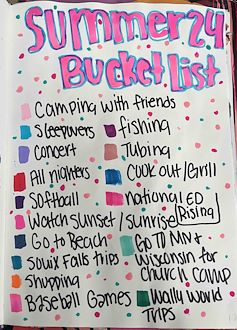 Summer 24
Bucket list
Camping with friends
Sleepovers
fishing
Concert
Tubing
All nighters
Cook out/Grill
Softball
national ED Rising
Watch sunset/sunrise
Go to Beach
Go TO MN +
Wisconsin for
Church camp
Souix Falls trips
Shopping
Wally World
Trips
Baseball Games